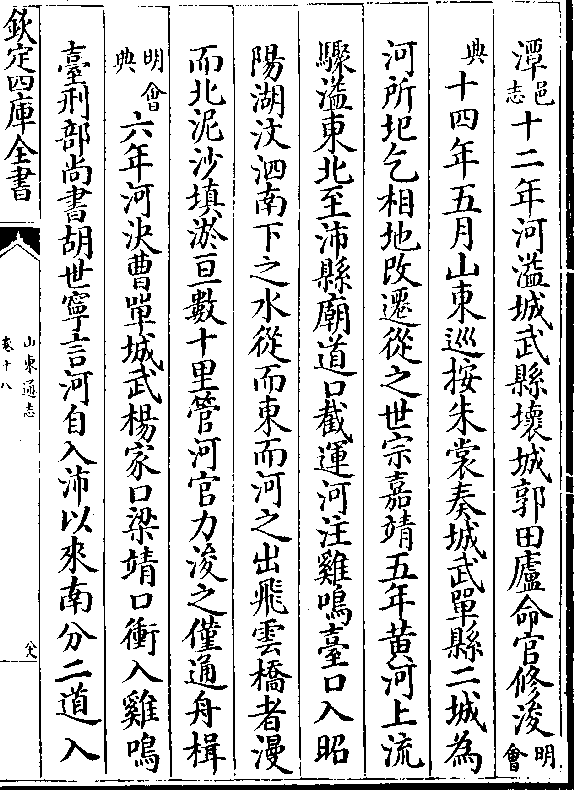 潭邑志十二年河溢城武縣壞城郭田廬命官修浚明會
典十四年五月山東巡按朱裳奏城武單縣二城為
河所圮乞相地改遷從之世宗嘉靖五年黄河上流
驟溢東北至沛縣廟道口截運河注雞鳴臺口入昭
陽湖汶泗南下之水從而東而河之出飛雲橋者漫
而北泥沙填淤亘數十里管河官力浚之僅通舟楫
明會典六年河決曹單城武楊家口梁靖口衝入雞鳴
臺刑部尚書胡世寧言河自入沛以來南分二道入
欽定四庫全書
山東通志
卷十八